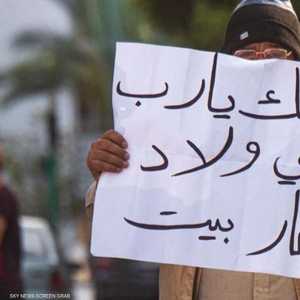 يارب
ولاد
بيت
SKY NEWS-SCREEN GRAB